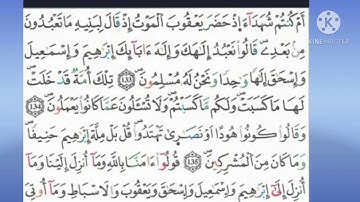 KINEMASTER
أَمْ كُنتُمْ شُهَدَآءَ إِذْ حَضَرَ يَعْقُوبَ ٱلْمَوْتُ إِذْ قَالَ لِبَنِيهِ مَا تَعْبُدُونَ
مِنۢ بَعْدِىۖ قَالُوا۟ نَعْبُدُ إِلَٰهَكَ وَإِلَٰهَ ءَابَآئِكَ إِبْرَٰهِـۧمَ وَإِسْمَٰعِيلَ
وَإِسْحَٰقَ إِلَٰهًا وَٰحِدًا وَنَحْنُ لَهُۥ مُسْلِمُونَ ١٣٣ تِلْكَ أُمَّةٌ قَدْ خَلَتْۖ
لَهَا مَا كَسَبَتْ وَلَكُم مَّا كَسَبْتُمْۖ وَلَا تُسْـَٔلُونَ عَمَّا كَانُوا۟ يَعْمَلُونَ ١٣٤
وَقَالُوا۟ كُونُوا۟ هُودًا أَوْ نَصَٰرَىٰ تَهْتَدُوا۟ۗ قُلْ بَلْ مِلَّةَ إِبْرَٰهِـۧمَ حَنِيفًاۖ
وَمَا كَانَ مِنَ ٱلْمُشْرِكِينَ ١٣٥ قُولُوٓا۟ ءَامَنَّا بِٱللَّهِ وَمَآ أُنزِلَ إِلَيْنَا وَمَآ
أُنزِلَ إِلَىٰٓ إِبْرَٰهِـۧمَ وَإِسْمَٰعِيلَ وَإِسْحَٰقَ وَيَعْقُوبَ وَٱلْأَسْبَاطِ وَمَآ أُوتِىَ